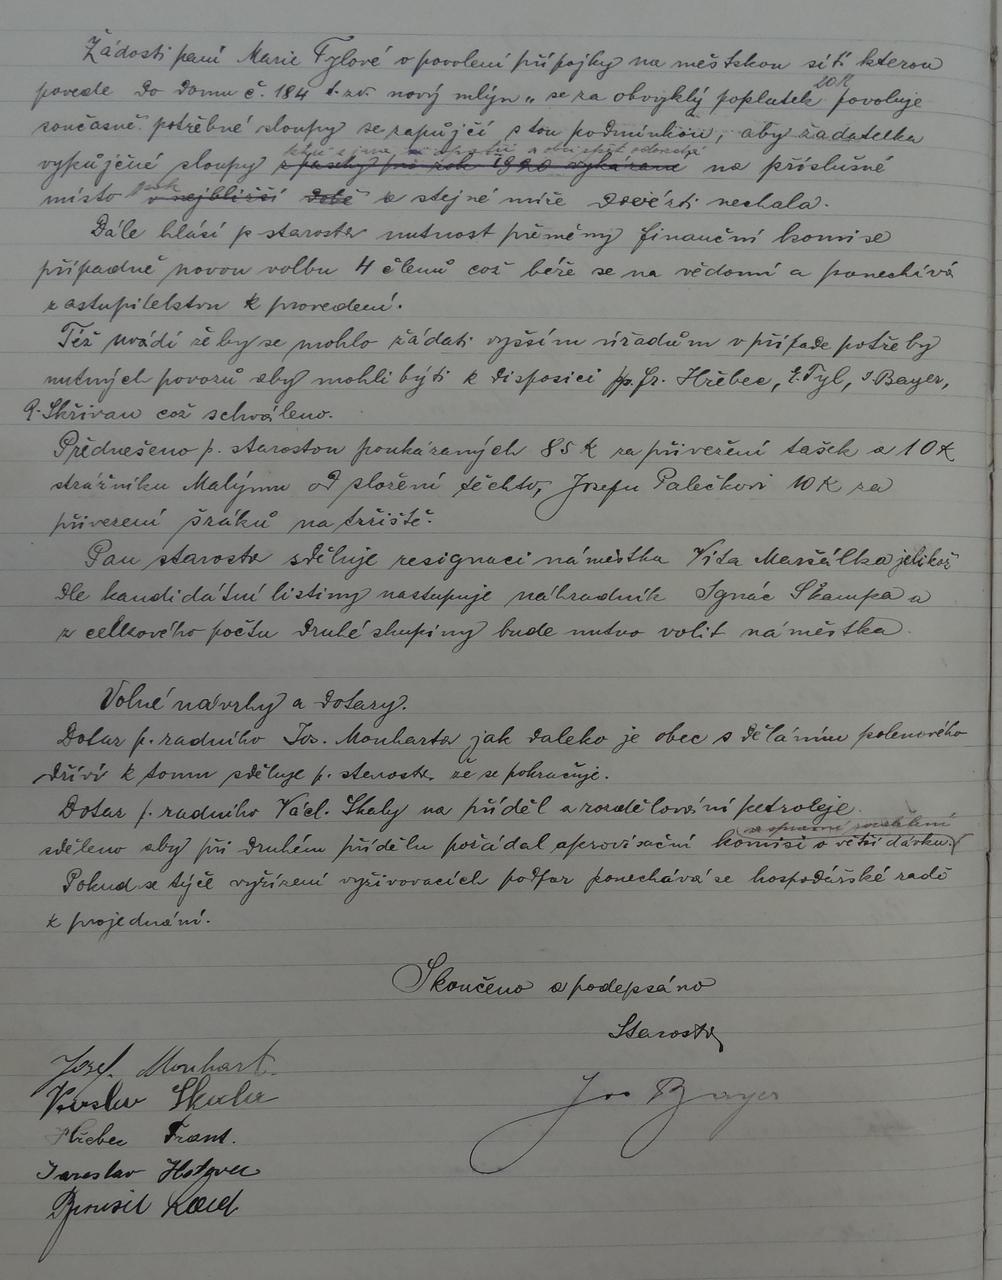 Žádosti paní Marie Tylové o povolení přípojky na městskou síť kterou
povede do domu č. 184 t. zv. nový mlýn„ se za obvyklý poplatek 20 K povoluje
současně potřebné sloupy se zapůjčí s tou podmínkou, aby žadatelka
vypůjčené sloupy na příslušné
místo v nejbližší době a stejné míře dovézti nechala.
Dále hlásí p. starosta nutnost přeměny finanční komise
případně novou volbu 4 členů což béře se na vědomí a ponechává
zastupitelstvu k provedení.
Též uvádí že by se mohlo žádati vyšším úřadům v případe potřeby
nutných povozů aby mohli býti k disposici pp. Fr. Hřebec, E. Tyl, J. Bayer,
A. Skřivan což schváleno.
Předneseno p. starostou poukázaných 85 K za přivezení tašek a 10 K
strážníku Malýmu od složení těchto, Josefu Palečkovi 10 K za
přivezení šráků na tržiště.
Pan starosta sděluje resignaci náměstka Víta Maršálka jelikož
dle kandidátní listiny nastupuje náhradník Ignác Škampa a
z celkového počtu druhé skupiny bude nutno volit náměstka.
Volné návrhy a dotazy.
Dotaz p. radního Jos. Monharta jak daleko je obec s děláním polenového
dříví k tomu sděluje p. starosta, že se pokračuje.
Dotaz p. radního Václ. Skaly na příděl a rozdělování petroleje
sděleno aby při druhém přídělu požádal aprovisační komisi o větší dávku.
Pokud se týče vyřízení vyživovacích podpor ponechává se hospodářské radě
k projednání.
Skončeno a podepsáno
Starosta
Josef Monhart
Jos Bayer
Václav Skala
Hřebec Frant.
Jaroslav
Brousil Karel